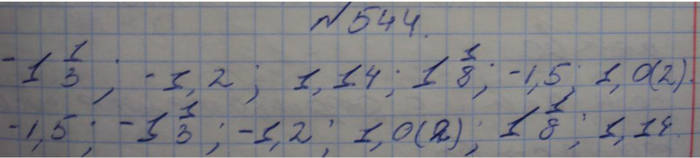 №544.
-1 1/3; -1,2; 1,14; 1 1/8; -1,5; 1,0(2).
-1,5; -1 1/3; -1,2; 1,0(2); 1 1/8; 1,14.